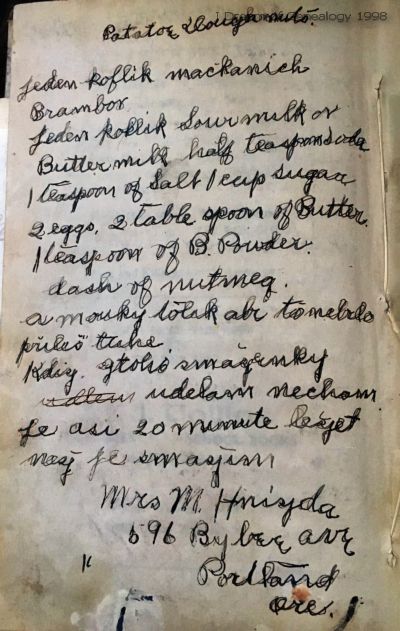 J Dushon Genealogy 1998
Patatoe Doughnuts.
Jeden koflik mačkanich
Brambor
Jeden koflik Sour milk or
Butter milk half teaspon soda
1 teaspoon of Salt 1 cup sugar
2 eggs, 2 table spoon of Butter.
1 teaspoon of B. Powder.
dash of nutmeg.
a mouky tolik abi to nebilo
přiliš tuhe
Kdiz. ztoho smaženky
udelam necham
je asi 20 minute ležet
nez je smazim
Mrs M. Hnizda
596 Bybee ave
Portland
ore.